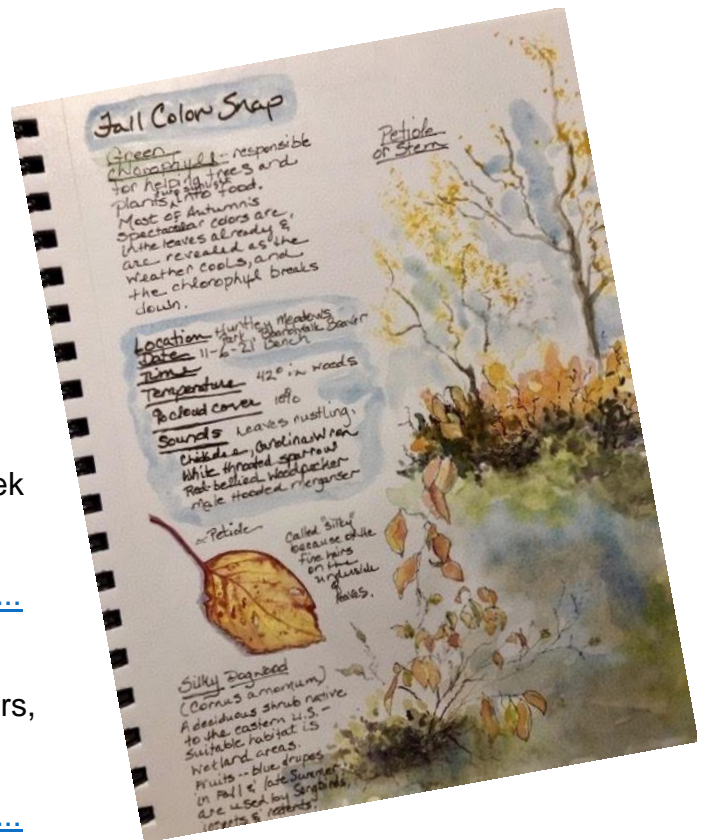 ek
...
rs,
...
Fall Color Snap
Green
Chlorophyll -- responsible
for helping trees and
plants turn sunlight into food.
Most of Autumn's
spectacular colors are
in the leaves already &
are revealed as the
weather cools, and
the chlorophyl breaks
down.
Petiole
or Stem
Location Huntley Meadows
Park, Boardwalk Beaver
Date 11-6-21 Bench
Time
Temperature 42° in woods
% cloud cover 10%
Sounds Leaves rustling,
Chickadee, Carolina Wren
White throated sparrow
Red-bellied Woodpecker
male Hooded merganser
Petiole
Called "silky"
because of the
fine hairs
on the
underside
of
leaves.
Silky Dogwood
(Cornus amomum)
A deciduous shrub native
to the eastern U.S. -
suitable habitat is
wetland areas.
Fruits -- blue drupes
in Fall & late Summer
are used by songbirds,
insects & rodents.